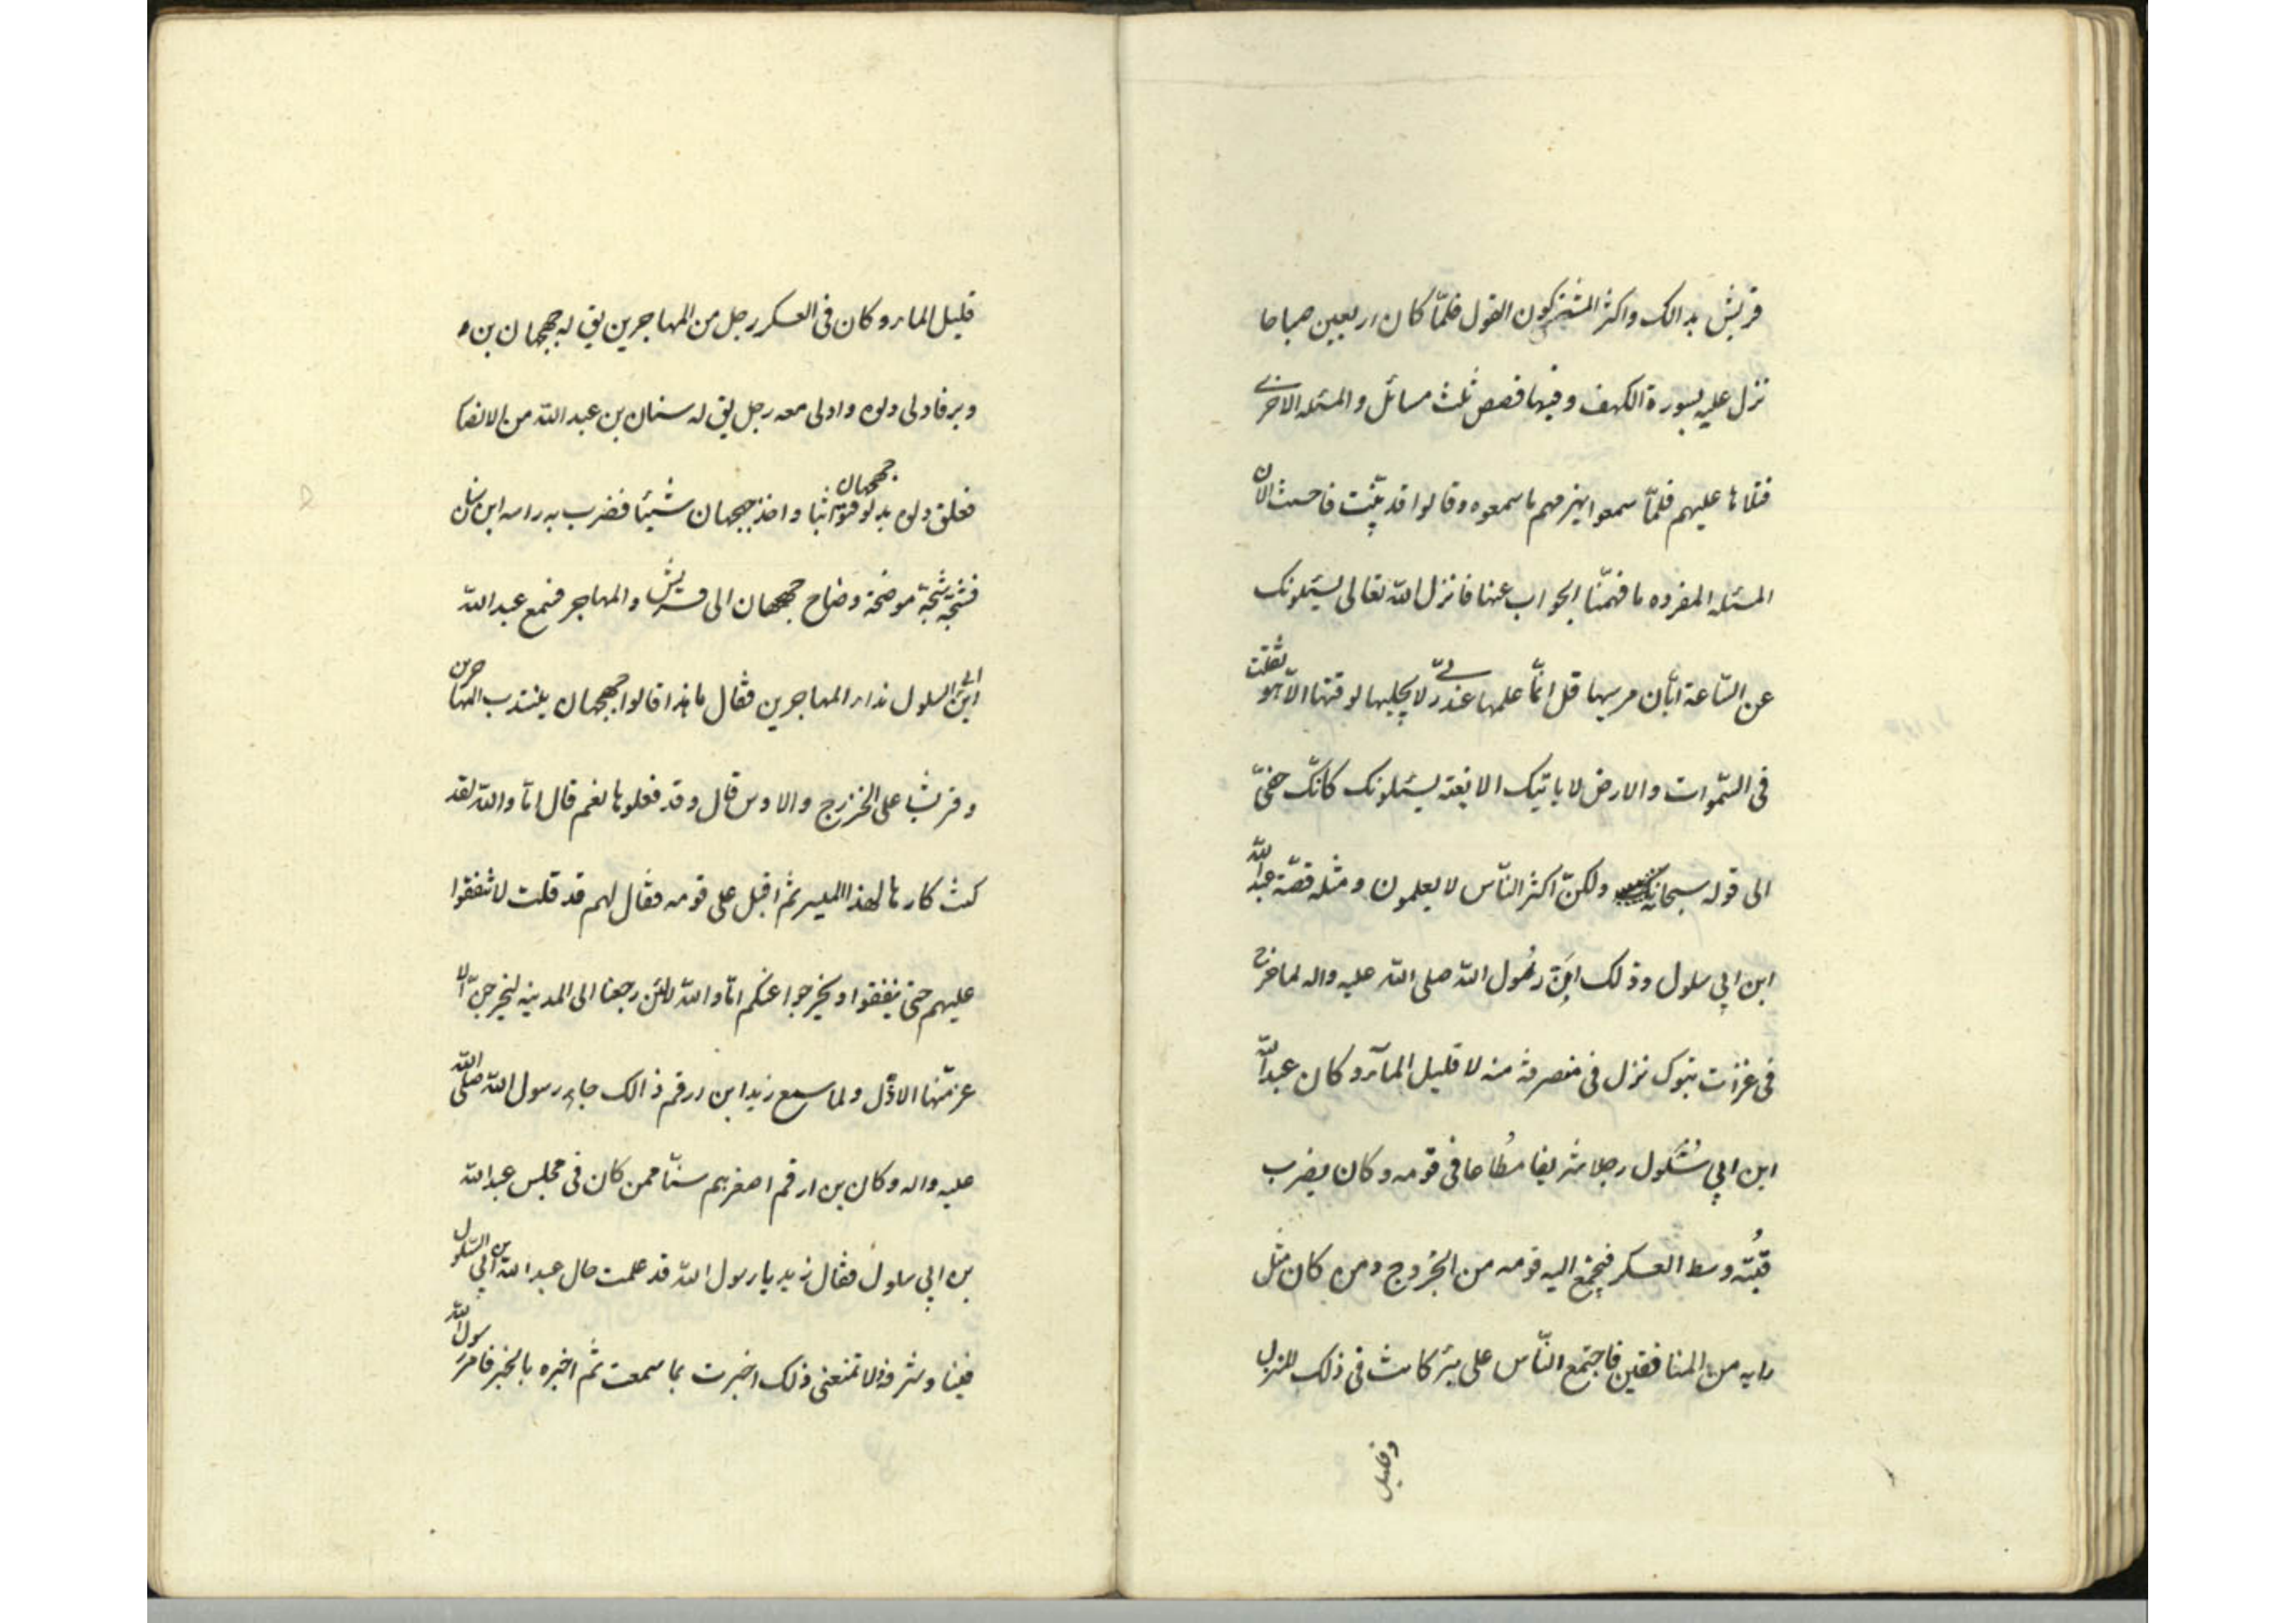 قريش بذالك واكثر المشركون القول فلمّا كان اربعين صباحا
نزل عليه بسورة الكهف وفيها قصص ثلث مسائل والمسئله الاخرى
فتلاها عليهم فلمّا سمعوا ما سمعوه وقالوا قد بيّنت فاحسنت الان
المسئله المفرده ما فهمّنا الجواب عنها فانزل الله تعالى يسئلونك
عن السّاعة ايّان مرسيها قل انمّا علمها عند ربّى لا يجليها لوقتها الاّ هو ثقلت
فى السّموات والارض لا ياتيك الا بغتة يسئلونك كانّك حفىّ
الى قوله سبحانه ولكنّ اكثر النّاس لا يعلمون ومثله قصّة عبد الله
ابن ابي سلول وذلك انّ رسول الله صلى الله عليه واله لما خرج
فى غزات تبوك نزل فى منصرفه منزلا قليل المآء وكان عبد الله
ابن ابي سلول رجلا شريفا مُطاعا فى قومه وكان يضرب
قبّته وسط العسكر فيجتمع اليه قومه من الخزرج ومن كان مثل
رايه من المنافقين فاجتمع النّاس على بئر كانت فى ذلك المنزل
وقليل
قليل الماء وكان فى العسكر رجل من المهاجرين يق له جهجهان بن
وبر فادلى دلوه وادلى معه رجل يق له سنان بن عبد الله من الانصا
فعلق دلوه بدلو جهجهان واخذ جهجهان شيئا فضرب به راس ابن سنان
فشجّه شجّة موضحة وصاح جهجهان الى قريش والمهاجر فسمع عبد الله
ابن ابى السلول نداء المهاجرين فقال ما هذا قالوا جهجهان يلنتدب المهاجرين
وقريشا على الخزرج والاوس قال وقد فعلوها نعم قال انا والله لقد
كنت كارها لهذا المسير ثم اقبل على قومه فقال لهم قد قلت لا تنفقوا
عليهم حتى ينفقوا ويخرجوا عنكم انا والله لئن رجعنا الى المدينه ليخرجنّ الا
عزّمنها الاذلّ ولما سمع زيد ابن ارقم ذالك جاء رسول الله صلى الله
عليه واله وكان بن ارقم اصغرهم سنّا ممن كان فى مجلس عبد الله
بن ابي سلول فقال زيد يا رسول الله قد علمت حال عبد الله بن ابي السّلول
فينا وشرفه ولا تمنعنى ذلك اخبرت بما سمعت ثم اخبره بالخبر فامر رسول الله